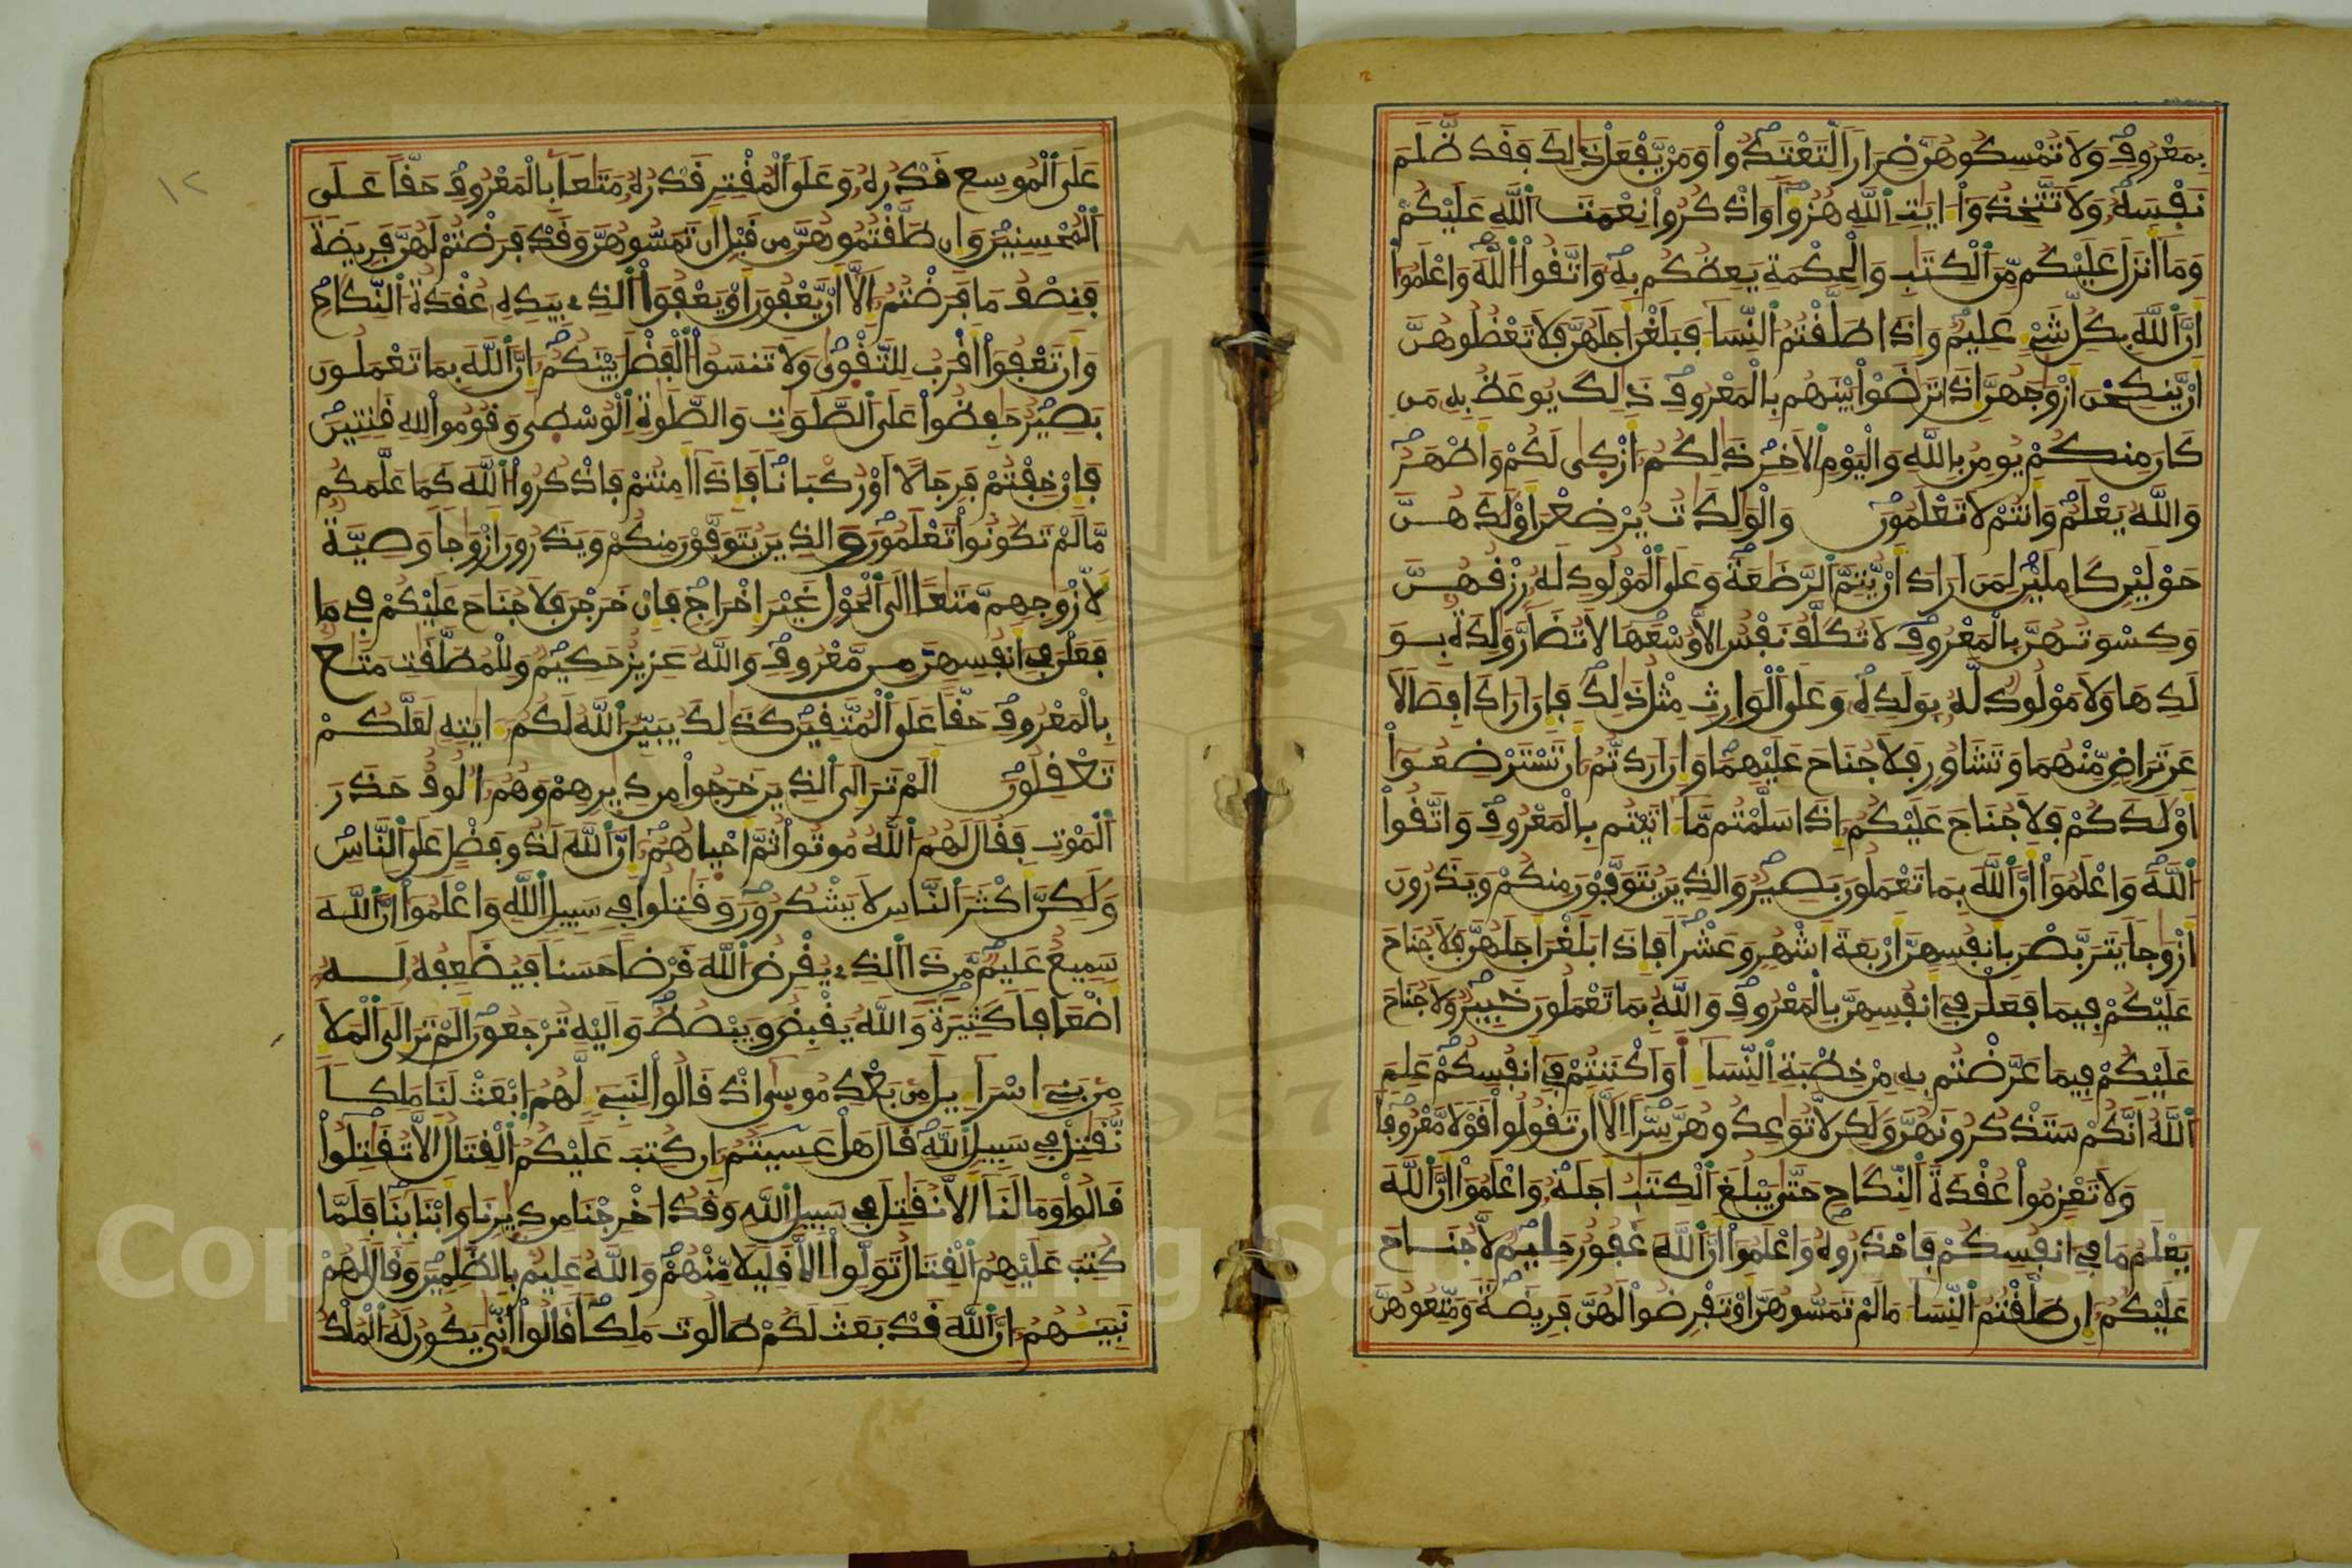 بِمَعْرُوفٍ وَلَا تُمْسِكُوهُنَّ ضِرَارًا لِّتَعْتَدُوا۟ وَمَنْ يَّفْعَلْ ذَٰلِكَ فَقَد ظَّلَمَ
نَفْسَهُۥ وَلَا تَتَّخِذُوٓا۟ ءَايَٰتِ ٱللَّهِ هُزُؤًا وَاذْكُرُوا۟ نِعْمَتَ ٱللَّهِ عَلَيْكُمْ
وَمَآ أَنزَلَ عَلَيْكُم مِّنَ ٱلْكِتَٰبِ وَالْحِكْمَةِ يَعِظُكُم بِهِۦ وَاتَّقُوا۟ ٱللَّهَ وَاعْلَمُوٓا۟
أَنَّ ٱللَّهَ بِكُلِّ شَيْءٍ عَلِيمٌ وَإِذَا طَلَّقْتُمُ ٱلنِّسَآءَ فَبَلَغْنَ أَجَلَهُنَّ فَلَا تَعْضُلُوهُنَّ
أَنْ يَّنكِحْنَ أَزْوَٰجَهُنَّ إِذَا تَرَٰضَوْا۟ بَيْنَهُم بِالْمَعْرُوفِ ذَٰلِكَ يُوعَظُ بِهِۦ مَن
كَانَ مِنكُمْ يُومِنُ بِاللَّهِ وَالْيَوْمِ ٱلْأَخِرِ ذَٰلِكُمُۥٓ أَزْكَىٰ لَكُمْ وَأَطْهَرُ
وَاللَّهُ يَعْلَمُ وَأَنتُمْ لَا تَعْلَمُونَ وَالْوَٰلِدَٰتُ يُرْضِعْنَ أَوْلَٰدَهُنَّ
حَوْلَيْنِ كَامِلَيْنِ لِمَنَ أَرَادَ أَنْ يُّتِمَّ ٱلرَّضَٰعَةَ وَعَلَى ٱلْمَوْلُودِ لَهُۥ رِزْقُهُنَّ
وَكِسْوَتُهُنَّ بِالْمَعْرُوفِ لَا تُكَلَّفُ نَفْسٌ إِلَّا وُسْعَهَا لَا تُضَآرَّ وَٰلِدَةٌۢ بِوَ
لَدِهَا وَلَا مَوْلُودٌ لَّهُۥ بِوَلَدِهِۦ وَعَلَى ٱلْوَارِثِ مِثْلُ ذَٰلِكَ فَإِنَ أَرَادَا فِصَالًا
عَن تَرَاضٍ مِّنْهُمَا وَتَشَاوُرٍ فَلَا جُنَاحَ عَلَيْهِمَا وَإِنَ أَرَدتُّمُۥٓ أَن تَسْتَرْضِعُوٓا۟
أَوْلَٰدَكُمْ فَلَا جُنَاحَ عَلَيْكُمُۥٓ إِذَا سَلَّمْتُم مَّآ ءَاتَيْتُم بِالْمَعْرُوفِ وَاتَّقُوا۟
ٱللَّهَ وَاعْلَمُوٓا۟ أَنَّ ٱللَّهَ بِمَا تَعْمَلُونَ بَصِيرٌ وَالذِينَ يُتَوَفَّوْنَ مِنكُمْ وَيَذَرُونَ
أَزْوَٰجًا يَتَرَبَّصْنَ بِأَنفُسِهِنَّ أَرْبَعَةَ أَشْهُرٍ وَعَشْرًا فَإِذَا بَلَغْنَ أَجَلَهُنَّ فَلَا جُنَاحَ
عَلَيْكُمْ فِيمَا فَعَلْنَ فِىٓ أَنفُسِهِنَّ بِالْمَعْرُوفِ وَاللَّهُ بِمَا تَعْمَلُونَ خَبِيرٌ وَلَا جُنَاحَ
عَلَيْكُمْ فِيمَا عَرَّضْتُم بِهِۦ مِنْ خِطْبَةِ ٱلنِّسَآءِ أَوَ اَكْنَنتُمْ فِىٓ أَنفُسِكُمْ عَلِمَ
ٱللَّهُ أَنَّكُمْ سَتَذْكُرُونَهُنَّ وَلَٰكِن لَّا تُوَاعِدُوهُنَّ سِرًّا إِلَّآ أَن تَقُولُوا۟ قَوْلًا مَّعْرُوفًا
وَلَا تَعْزِمُوا۟ عُقْدَةَ ٱلنِّكَاحِ حَتَّىٰ يَبْلُغَ ٱلْكِتَٰبُ أَجَلَهُۥ وَاعْلَمُوٓا۟ أَنَّ ٱللَّهَ
يَعْلَمُ مَا فِىٓ أَنفُسِكُمْ فَاحْذَرُوهُ وَاعْلَمُوٓا۟ أَنَّ ٱللَّهَ غَفُورٌ حَلِيمٌ لَّا جُنَاحَ
عَلَيْكُمُۥٓ إِن طَلَّقْتُمُ ٱلنِّسَآءَ مَا لَمْ تَمَسُّوهُنَّ أَوْ تَفْرِضُوا۟ لَهُنَّ فَرِيضَةً وَمَتِّعُوهُنَّ
عَلَى ٱلْمُوسِعِ قَدْرُهُۥ وَعَلَى ٱلْمُقْتِرِ قَدْرُهُۥ مَتَٰعًۢا بِالْمَعْرُوفِ حَقًّا عَلَى
ٱلْمُحْسِنِينَ وَإِن طَلَّقْتُمُوهُنَّ مِن قَبْلِ أَن تَمَسُّوهُنَّ وَقَدْ فَرَضْتُمْ لَهُنَّ فَرِيضَةً
فَنِصْفُ مَا فَرَضْتُمُۥٓ إِلَّآ أَنْ يَّعْفُونَ أَوْ يَعْفُوَا۟ ٱلذِى بِيَدِهِۦ عُقْدَةُ ٱلنِّكَاحِ
وَأَن تَعْفُوٓا۟ أَقْرَبُ لِلتَّقْوَىٰ وَلَا تَنسَوُا۟ ٱلْفَضْلَ بَيْنَكُمُۥٓ إِنَّ ٱللَّهَ بِمَا تَعْمَلُونَ
بَصِيرٌ حَٰفِظُوا۟ عَلَى ٱلصَّلَوَٰتِ وَالصَّلَوٰةِ ٱلْوُسْطَىٰ وَقُومُوا۟ لِلهِ قَٰنِتِينَ
فَإِنْ خِفْتُمْ فَرِجَالًا أَوْ رُكْبَانًا فَإِذَآ أَمِنتُمْ فَاذْكُرُوا۟ ٱللَّهَ كَمَا عَلَّمَكُم
مَّا لَمْ تَكُونُوا۟ تَعْلَمُونَ وَالذِينَ يُتَوَفَّوْنَ مِنكُمْ وَيَذَرُونَ أَزْوَٰجًا وَصِيَّةٌ
لِّأَزْوَٰجِهِم مَّتَٰعًا إِلَى ٱلْحَوْلِ غَيْرَ إِخْرَاجٍ فَإِنْ خَرَجْنَ فَلَا جُنَاحَ عَلَيْكُمْ فِى مَا
فَعَلْنَ فِىٓ أَنفُسِهِنَّ مِن مَّعْرُوفٍ وَاللَّهُ عَزِيزٌ حَكِيمٌ وَلِلْمُطَلَّقَٰتِ مَتَٰعٌۢ
بِالْمَعْرُوفِ حَقًّا عَلَى ٱلْمُتَّقِينَ كَذَٰلِكَ يُبَيِّنُ ٱللَّهُ لَكُمُۥٓ ءَايَٰتِهِۦ لَعَلَّكُمْ
تَعْقِلُونَ أَلَمْ تَرَ إِلَى ٱلذِينَ خَرَجُوا۟ مِن دِيَٰرِهِمْ وَهُمُۥٓ أُلُوفٌ حَذَرَ
ٱلْمَوْتِ فَقَالَ لَهُمُ ٱللَّهُ مُوتُوا۟ ثُمَّ أَحْيَاهُمُۥٓ إِنَّ ٱللَّهَ لَذُو فَضْلٍ عَلَى ٱلنَّاسِ
وَلَٰكِنَّ أَكْثَرَ ٱلنَّاسِ لَا يَشْكُرُونَ وَقَٰتِلُوا۟ فِى سَبِيلِ ٱللَّهِ وَاعْلَمُوٓا۟ أَنَّ ٱللَّهَ
سَمِيعٌ عَلِيمٌ مَّن ذَا ٱلذِى يُقْرِضُ ٱللَّهَ قَرْضًا حَسَنًا فَيُضَٰعِفُهُۥ لَهُۥٓ
أَضْعَافًا كَثِيرَةً وَاللَّهُ يَقْبِضُ وَيَبْصُطُ وَإِلَيْهِ تُرْجَعُونَ أَلَمْ تَرَ إِلَى ٱلْمَلَإِ
مِنۢ بَنِىٓ إِسْرَآءِيلَ مِنۢ بَعْدِ مُوسَىٰٓ إِذْ قَالُوا۟ لِنَبِىٓءٍ لَّهُمُ اِبْعَثْ لَنَا مَلِكًا
نُّقَٰتِلْ فِى سَبِيلِ ٱللَّهِ قَالَ هَلْ عَسِيتُمُۥٓ إِن كُتِبَ عَلَيْكُمُ ٱلْقِتَالُ أَلَّا تُقَٰتِلُوا۟
قَالُوا۟ وَمَا لَنَآ أَلَّا نُقَٰتِلَ فِى سَبِيلِ ٱللَّهِ وَقَدُ اخْرِجْنَا مِن دِيَٰرِنَا وَأَبْنَآئِنَا فَلَمَّا
كُتِبَ عَلَيْهِمُ ٱلْقِتَالُ تَوَلَّوِا۟ اِلَّا قَلِيلًا مِّنْهُمْ وَاللَّهُ عَلِيمٌۢ بِالظَّٰلِمِينَ وَقَالَ لَهُمْ
نَبِيٓـُٔهُمُۥٓ إِنَّ ٱللَّهَ قَدْ بَعَثَ لَكُمْ طَالُوتَ مَلِكًا قَالُوٓا۟ أَنَّىٰ يَكُونُ لَهُ ٱلْمُلْكُ
١٢